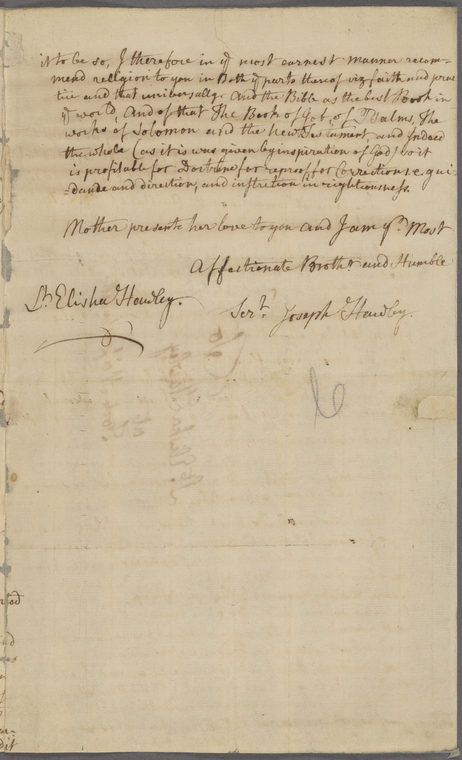 it to be so, I therefore in yͤ most earnest manner recom-
mend religion to you in Both yͤ parts thereof viz faith and prac
tice and that universally. And the Bible as the best Book in
yͤ world, And of that The Book of Job, of Psalms, The
works of Solomon and the new Testament, and Indeed
the whole (as it is was given by inspiration of God) so it
is profitable for Doctrine for reproof for Correction i.e. gui-
-dance and direction, and instrction in rightiousness.
Mother presents her love to you and I am yͬ. Most
Affectionate Brothͬ. and Humble
Serͭ. Joseph Hawley.
Lͭ. Elisha Hawley.